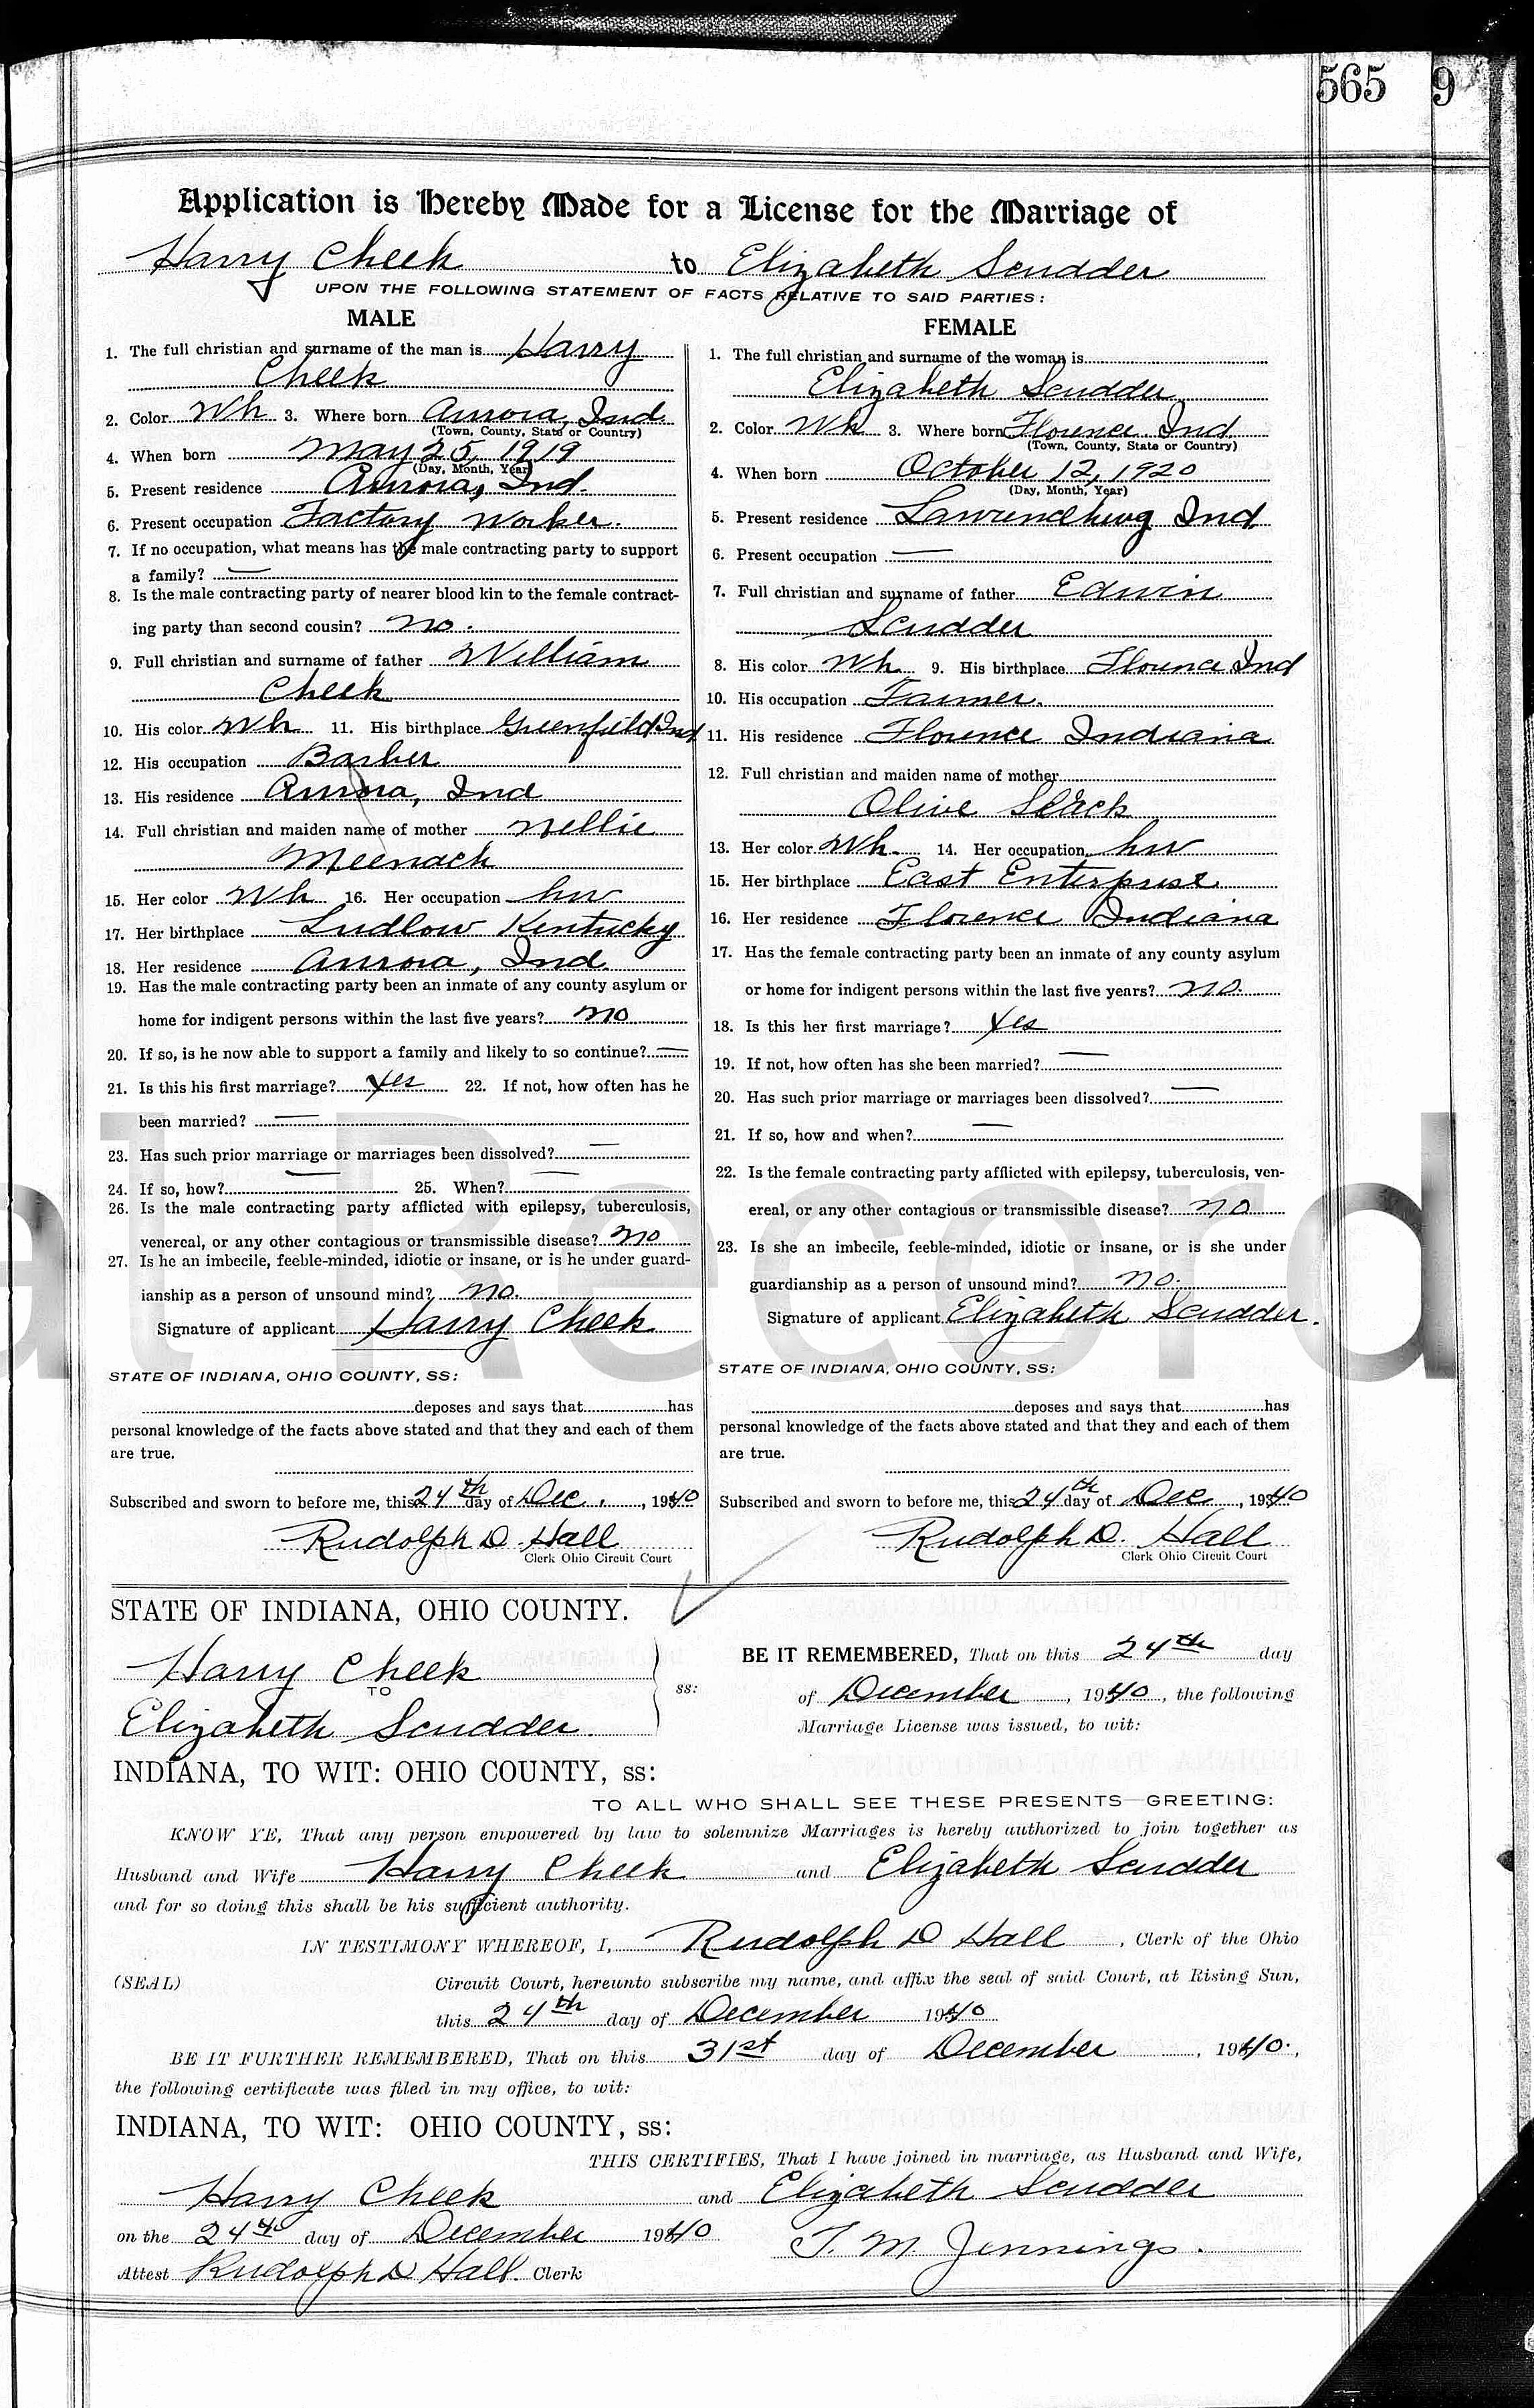 565 9
Application is Hereby Made for a License for the Marriage of
Harry Cheek to Elizabeth Scudder
UPON THE FOLLOWING STATEMENT OF FACTS RELATIVE TO SAID PARTIES:
MALE
1. The full christian and surname of the man is Harry
Cheek
2. Color Wh 3. Where born Aurora, Ind.
(Town, County, State or Country)
4. When born May 25, 1919
(Day, Month, Year)
5. Present residence Aurora, Ind.
6. Present occupation Factory Worker.
7. If no occupation, what means has the male contracting party to support
a family? —
8. Is the male contracting party of nearer blood kin to the female contract-
ing party than second cousin? no.
9. Full christian and surname of father William
Cheek
10. His color Wh 11. His birthplace Greenfield Ind
12. His occupation Barber
13. His residence Aurora, Ind
14. Full christian and maiden name of mother Nellie
Meenach
15. Her color Wh 16. Her occupation hw
17. Her birthplace Ludlow Kentucky
18. Her residence Aurora, Ind.
19. Has the male contracting party been an inmate of any county asylum or
home for indigent persons within the last five years? no
20. If so, is he now able to support a family and likely to so continue? —
21. Is this his first marriage? Yes 22. If not, how often has he
been married? —
23. Has such prior marriage or marriages been dissolved? —
24. If so, how? — 25. When? —
26. Is the male contracting party afflicted with epilepsy, tuberculosis,
venereal, or any other contagious or transmissible disease? no
27. Is he an imbecile, feeble-minded, idiotic or insane, or is he under guard-
ianship as a person of unsound mind? no.
Signature of applicant Harry Cheek
STATE OF INDIANA, OHIO COUNTY, SS:
deposes and says that has
personal knowledge of the facts above stated and that they and each of them
are true.
Subscribed and sworn to before me, this 24th day of Dec., 1940
Rudolph D. Hall
Clerk Ohio Circuit Court
FEMALE
1. The full christian and surname of the woman is
Elizabeth Scudder
2. Color Wh 3. Where born Florence Ind
(Town, County, State or Country)
4. When born October 12, 1920
(Day, Month, Year)
5. Present residence Lawrenceburg Ind
6. Present occupation —
7. Full christian and surname of father Edwin
Scudder
8. His color Wh 9. His birthplace Florence Ind
10. His occupation Farmer.
11. His residence Florence Indiana
12. Full christian and maiden name of mother
Olive
13. Her color Wh. 14. Her occupation hw
15. Her birthplace East Enterprise
16. Her residence Florence Indiana
17. Has the female contracting party been an inmate of any county asylum
or home for indigent persons within the last five years? no.
18. Is this her first marriage? Yes
19. If not, how often has she been married? —
20. Has such prior marriage or marriages been dissolved? —
21. If so, how and when? —
22. Is the female contracting party afflicted with epilepsy, tuberculosis, ven-
ereal, or any other contagious or transmissible disease? no
23. Is she an imbecile, feeble-minded, idiotic or insane, or is she under
guardianship as a person of unsound mind? no.
Signature of applicant Elizabeth Scudder.
STATE OF INDIANA, OHIO COUNTY, SS:
deposes and says that has
personal knowledge of the facts above stated and that they and each of them
are true.
Subscribed and sworn to before me, this 24th day of Dec, 1940
Rudolph D. Hall
Clerk Ohio Circuit Court
al Record
STATE OF INDIANA, OHIO COUNTY.
Harry Cheek
TO
Elizabeth Scudder.
ss:
BE IT REMEMBERED, That on this 24th day
of December, 1940, the following
Marriage License was issued, to wit:
INDIANA, TO WIT: OHIO COUNTY, ss:
TO ALL WHO SHALL SEE THESE PRESENTS—GREETING:
KNOW YE, That any person empowered by law to solemnize Marriages is hereby authorized to join together as
Husband and Wife Harry Cheek and Elizabeth Scudder
and for so doing this shall be his sufficient authority.
IN TESTIMONY WHEREOF, I, Rudolph D Hall, Clerk of the Ohio
(SEAL) Circuit Court, hereunto subscribe my name, and affix the seal of said Court, at Rising Sun,
this 24th day of December 1940
BE IT FURTHER REMEMBERED, That on this 31st day of December, 1940.,
the following certificate was filed in my office, to wit:
INDIANA, TO WIT: OHIO COUNTY, ss:
THIS CERTIFIES, That I have joined in marriage, as Husband and Wife,
Harry Cheek and Elizabeth Scudder
on the 24th day of December 1940 T. M. Jennings.
Attest Rudolph D Hall. Clerk